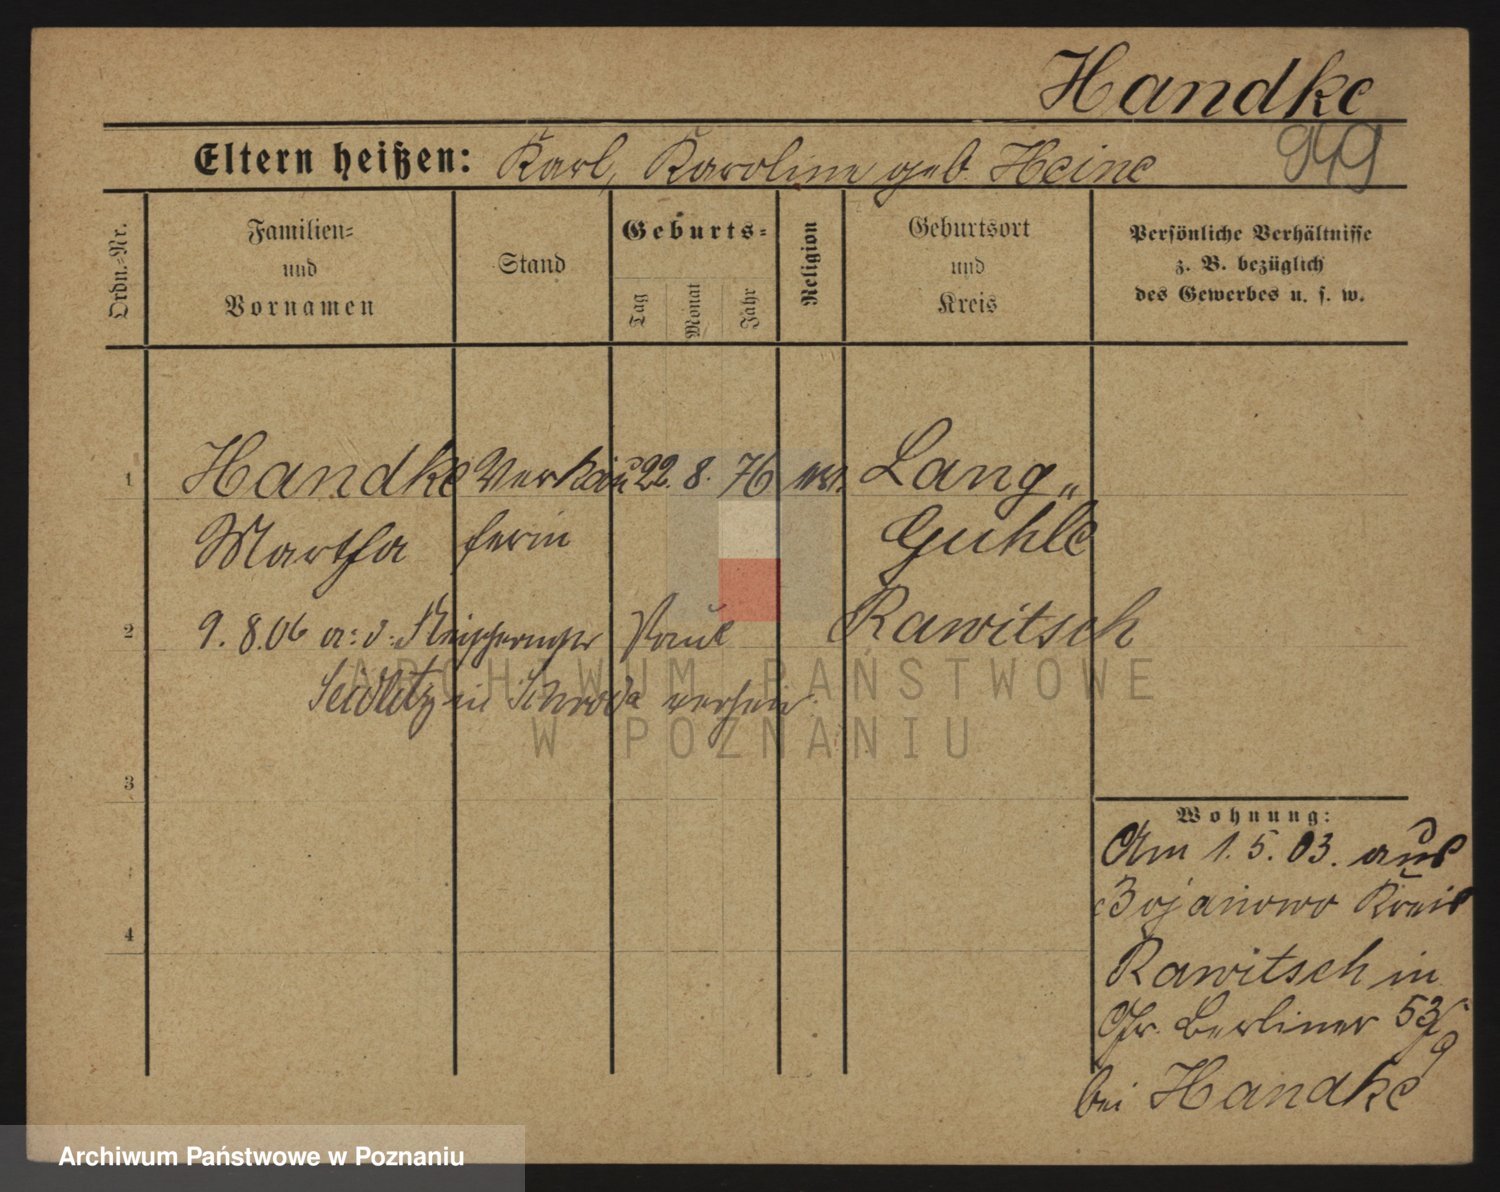 Handke
949
Eltern heißen: Karl, Karoline geb Heine
Ordn.-Nr.
Familien- und Vornamen
Stand
Geburts-
Tag
Monat
Jahr
Religion
Geburtsort und Kreis
Persönliche Verhältnisse z. B. bezüglich des Gewerbes u. s. w.
1 Handke Verkäu 22. 8. 76 ev. Lang„
Martha ferin Guhle
2 9. 8. 06 a: d: Paul Rawitsch
Seidlitz in Schroda
3
4
Wohnung:
Am 1. 5. 03. aus
Bojanowo Kreis
Rawitsch in
Gr. Berliner 53/9
bei Handke
ARCHIWUM PAŃSTWOWE
W POZNANIU
Archiwum Państwowe w Poznaniu